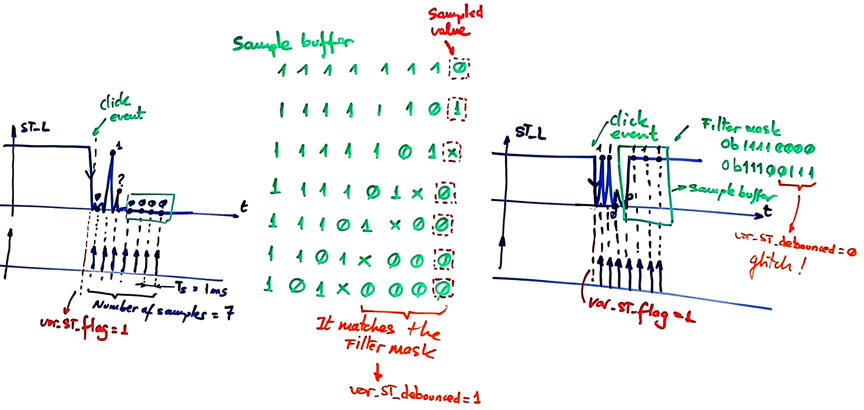 ST_L
click
event
1
?
0 0 0 0
t
Ts = 1ms
Number of samples = 7
var_ST_flag = 1
Sampled
value
Sample buffer
1 1 1 1 1 1 1 0
1 1 1 1 1 1 0 1
1 1 1 1 1 0 1 x
1 1 1 1 0 1 x 0
1 1 1 0 1 x 0 0
1 1 0 1 x 0 0 0
1 0 1 x 0 0 0 0
It matches the
Filter mask
var_ST_debounced = 1
ST_L
click
event
Filter mask
0b11110000
0b11100111
sample buffer
t
var_ST_debounced = 0
glitch!
var_ST_flag = 1